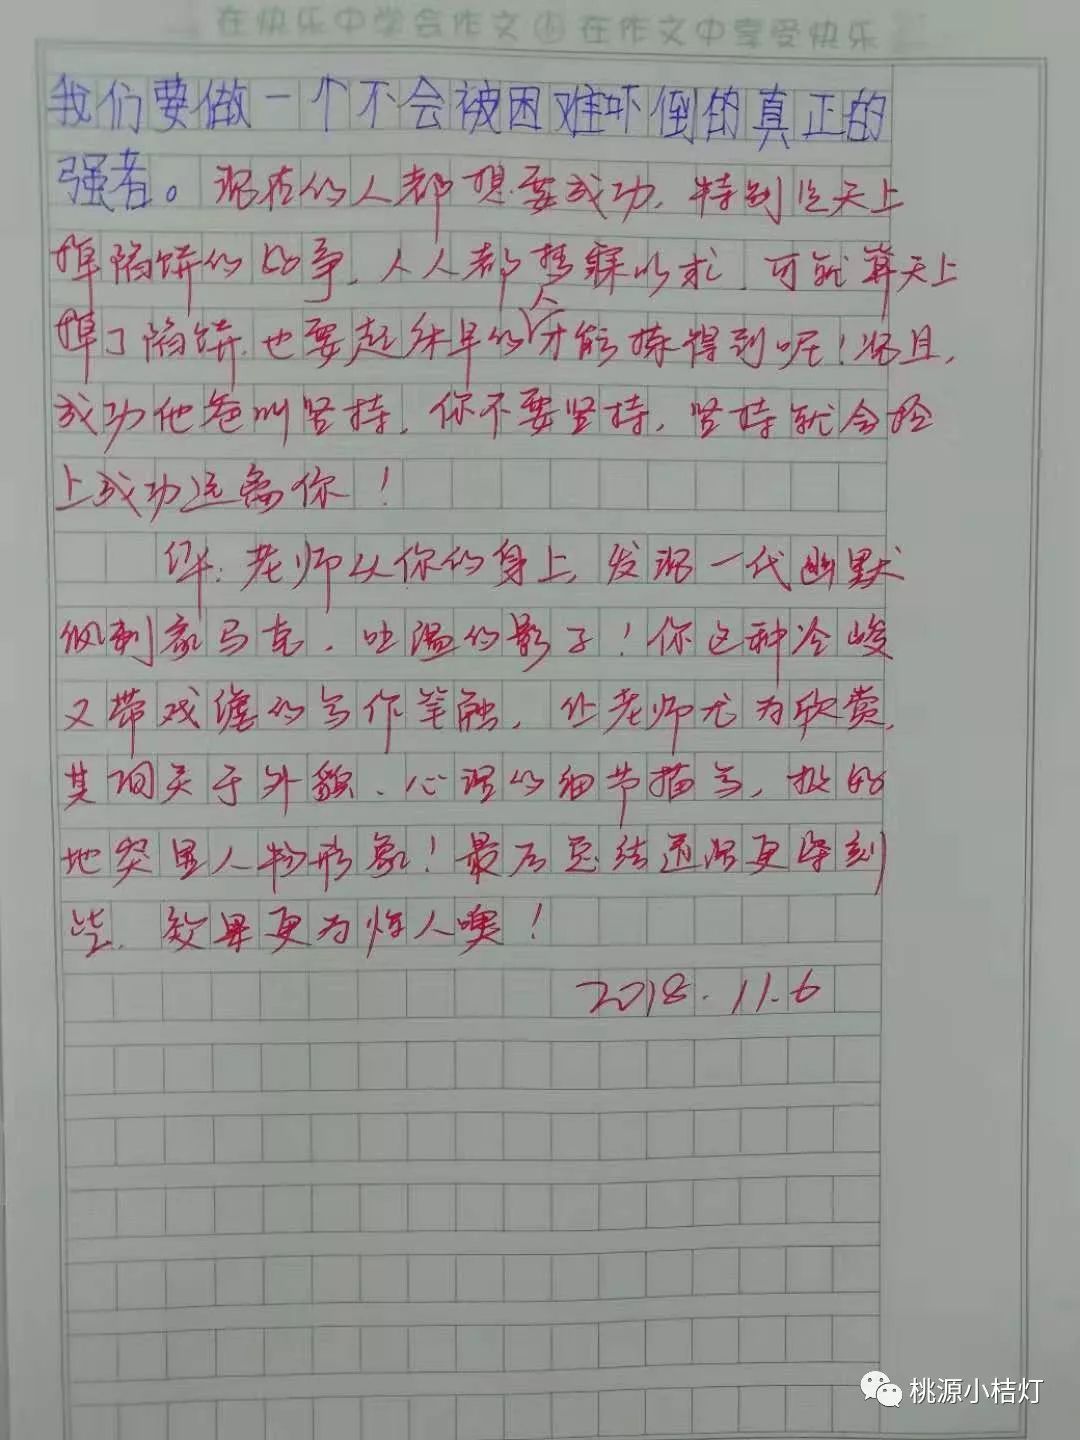 在快乐中学会作文 在作文中享受快乐
我们要做一个不会被困难吓倒的真正的
强者。现在的人都想要成功,特别是天上
掉馅饼的好事,人人都梦寐以求,可就算天上
掉了馅饼,也要起床早的人才能捡得到呢!况且,
成功他爸叫坚持,你不要坚持,坚持就会捡
上成功远离你!
评:老师从你的身上,发现一代幽默
讽刺家马克·吐温的影子!你这种冷峻
又带戏谑的写作笔触,让老师尤为欣赏,
其间关于外貌、心理的细节描写,极好
地突显人物形象!最后总结遥深更深刻
些,效果更为惊人噢!
2018.11.6
桃源小桔灯